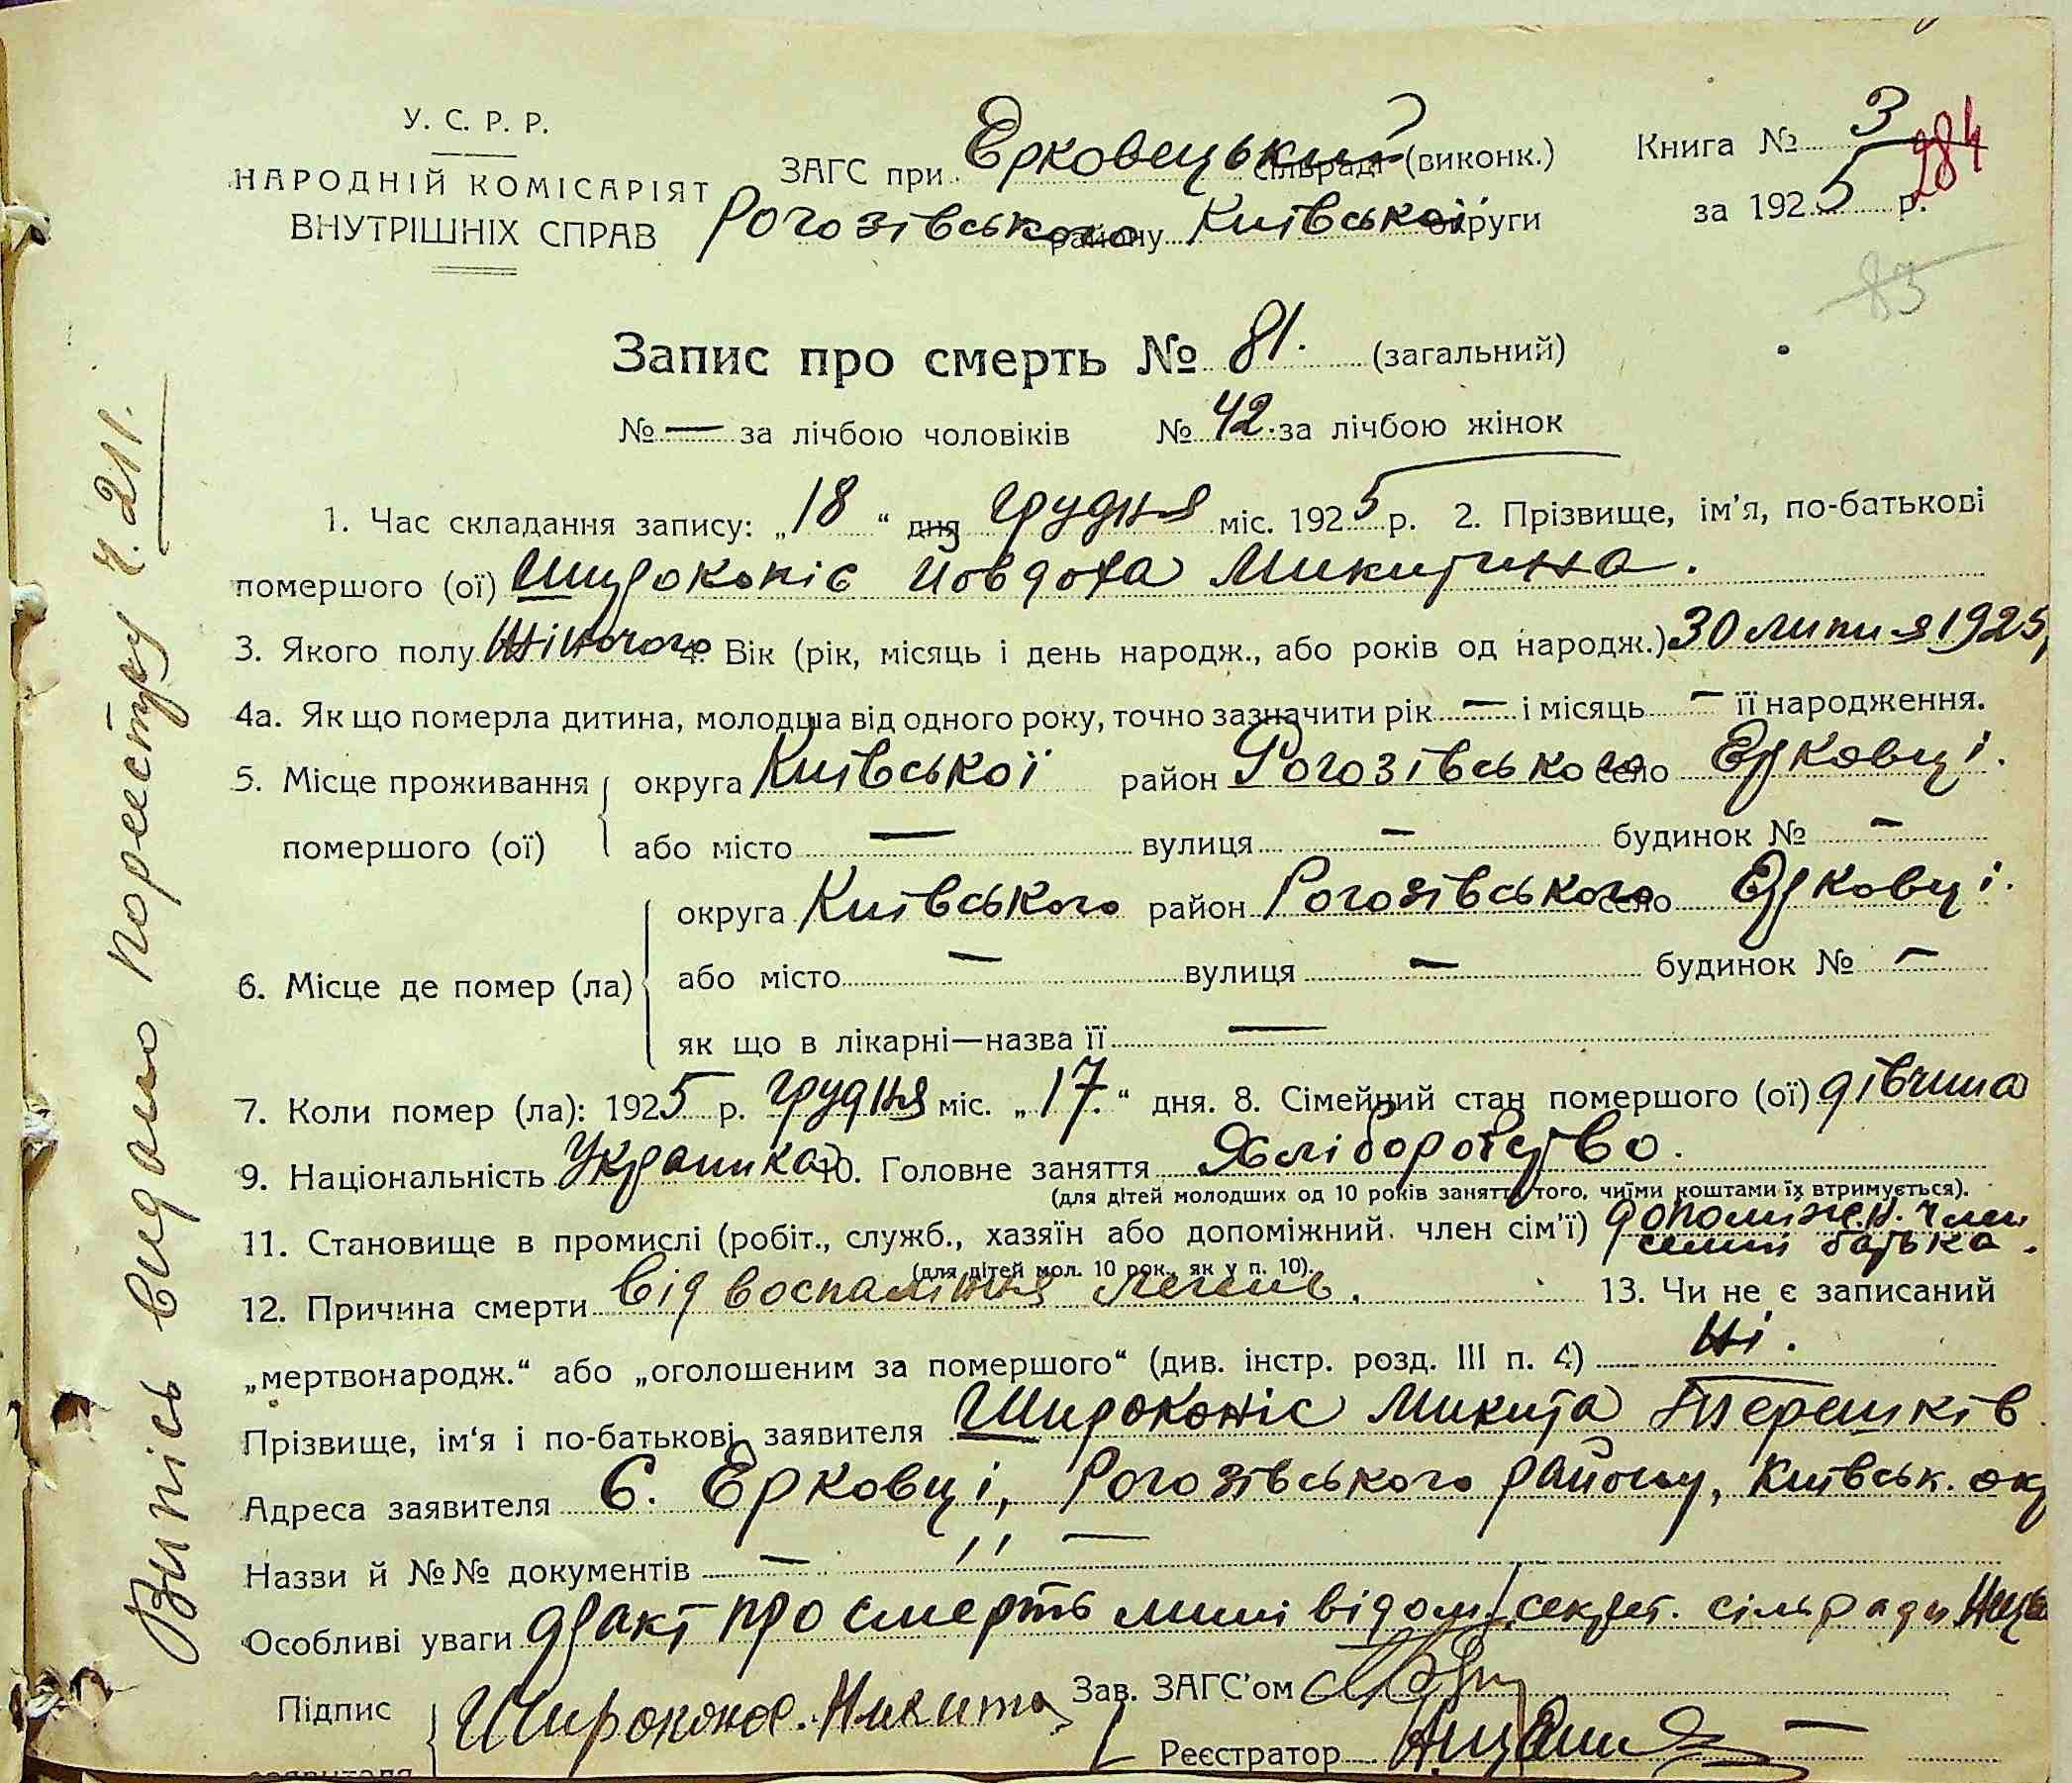 У. С. Р. Р.
НАРОДНІЙ КОМІСАРІЯТ
ВНУТРІШНІХ СПРАВ
ЗАГС при Ерковецький сільраді (виконк.)
Рогозівського району Київської округи
Книга № 3
284
за 1925 р.
83
Запис про смерть № 81. (загальний)
№ — за лічбою чоловіків № 42. за лічбою жінок
1. Час складання запису: „18“ дня грудня міс. 1925 р. 2. Прізвище, ім'я, по-батькові
помершого (ої) Широконіс Йовдоха Микитина.
3. Якого полу Жіночого 4. Вік (рік, місяць і день народж., або років од народж.) 30 липня 1925
4а. Як що померла дитина, молодша від одного року, точно зазначити рік — і місяць — її народження.
5. Місце проживання помершого (ої) округа Київської район Рогозівського село Ерковці.
або місто — вулиця — будинок № —
6. Місце де помер (ла) округа Київського район Рогозівського село Ерковці.
або місто — вулиця — будинок № —
як що в лікарні—назва її —
7. Коли помер (ла): 1925 р. грудня міс. „17.“ дня. 8. Сімейний стан помершого (ої) дівчина
9. Національність Українка 10. Головне заняття Хліборобство.
(для дітей молодших од 10 років заняття того, чиїми коштами їх втримується).
11. Становище в промислі (робіт., служб., хазяїн або допоміжний. член сім'ї) допоміжн. член
семьи батька.
(для дітей мол. 10 рок., як у п. 10).
12. Причина смерти від воспаління легень. 13. Чи не є записаний
„мертвонародж.“ або „оголошеним за помершого“ (див. інстр. розд. III п. 4) Ні.
Прізвище, ім'я і по-батькові заявителя Широконіс Микита Терешків
Адреса заявителя С. Ерковці, Рогозівського району, Київськ. окр
Назви й №№ документів — ,, —
Особливі уваги факт про смерть мені відом. секрет. сільради
Підпис
заявителя
Широконос. Никита
Зав. ЗАГС'ом
Реєстратор
Випісь видано по реестру ч. 211.